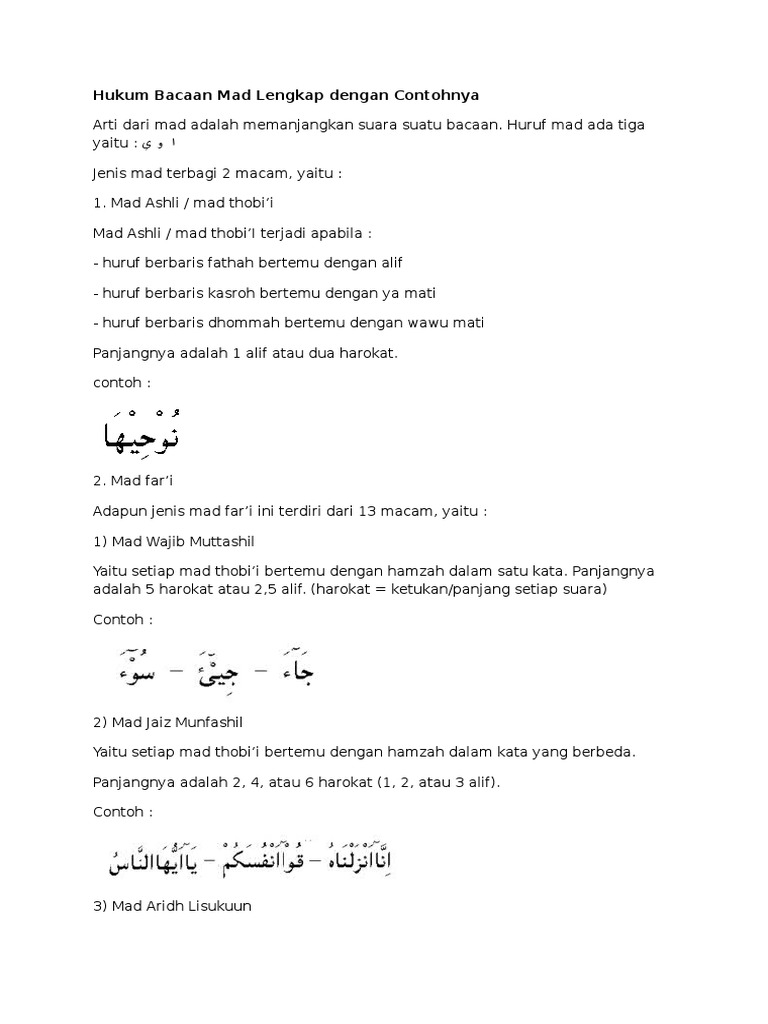 Hukum Bacaan Mad Lengkap dengan Contohnya
Arti dari mad adalah memanjangkan suara suatu bacaan. Huruf mad ada tiga
yaitu : ا و ي
Jenis mad terbagi 2 macam, yaitu :
1. Mad Ashli / mad thobi’i
Mad Ashli / mad thobi’I terjadi apabila :
- huruf berbaris fathah bertemu dengan alif
- huruf berbaris kasroh bertemu dengan ya mati
- huruf berbaris dhommah bertemu dengan wawu mati
Panjangnya adalah 1 alif atau dua harokat.
contoh :
نُوْحِيْهَا
2. Mad far’i
Adapun jenis mad far’i ini terdiri dari 13 macam, yaitu :
1) Mad Wajib Muttashil
Yaitu setiap mad thobi’i bertemu dengan hamzah dalam satu kata. Panjangnya
adalah 5 harokat atau 2,5 alif. (harokat = ketukan/panjang setiap suara)
Contoh :
جَآءَ – جِيْٓئَ – سُوْٓءَ
2) Mad Jaiz Munfashil
Yaitu setiap mad thobi’i bertemu dengan hamzah dalam kata yang berbeda.
Panjangnya adalah 2, 4, atau 6 harokat (1, 2, atau 3 alif).
Contoh :
اِنَّآاَنْزَلْنَاهُ – قُوْآاَنْفُسَكُمْ – يَآاَيُّهَاالنَّاسُ
3) Mad Aridh Lisukuun